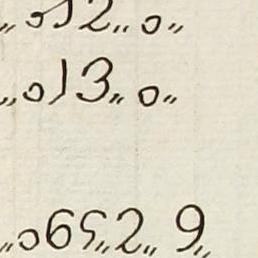 12„ 0„
„0 13„ 0„
„0695„ 2„ 9„